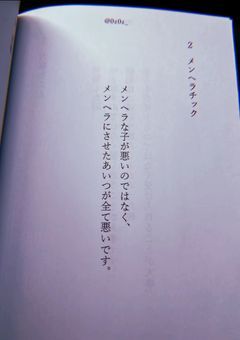 @0z0z_
2 メンヘラチック
メンヘラな子が悪いのではなく、
メンヘラにさせたあいつが全て悪いです。